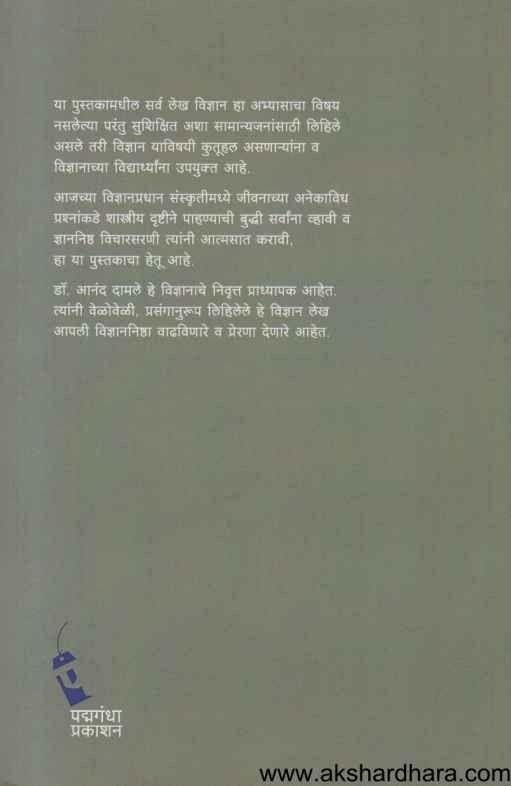 या पुस्तकामधील सर्व लेख विज्ञान हा अभ्यासाचा विषय
नसलेल्या परंतु सुशिक्षित अशा सामान्यजनांसाठी लिहिले
असले तरी विज्ञान याविषयी कुतूहल असणाऱ्यांना व
विज्ञानाच्या विद्यार्थ्यांना उपयुक्त आहे.
आजच्या विज्ञानप्रधान संस्कृतीमध्ये जीवनाच्या अनेकाविध
प्रश्नांकडे शास्त्रीय दृष्टीने पाहण्याची बुद्धी सर्वांना व्हावी व
ज्ञाननिष्ठ विचारसरणी त्यांनी आत्मसात करावी,
हा या पुस्तकाचा हेतू आहे.
डॉ. आनंद दामले हे विज्ञानाचे निवृत्त प्राध्यापक आहेत.
त्यांनी वेळोवेळी, प्रसंगानुरूप लिहिलेले हे विज्ञान लेख
आपली विज्ञाननिष्ठा वाढविणारे व प्रेरणा देणारे आहेत.
पद्मगंधा
प्रकाशन
www.akshardhara.com